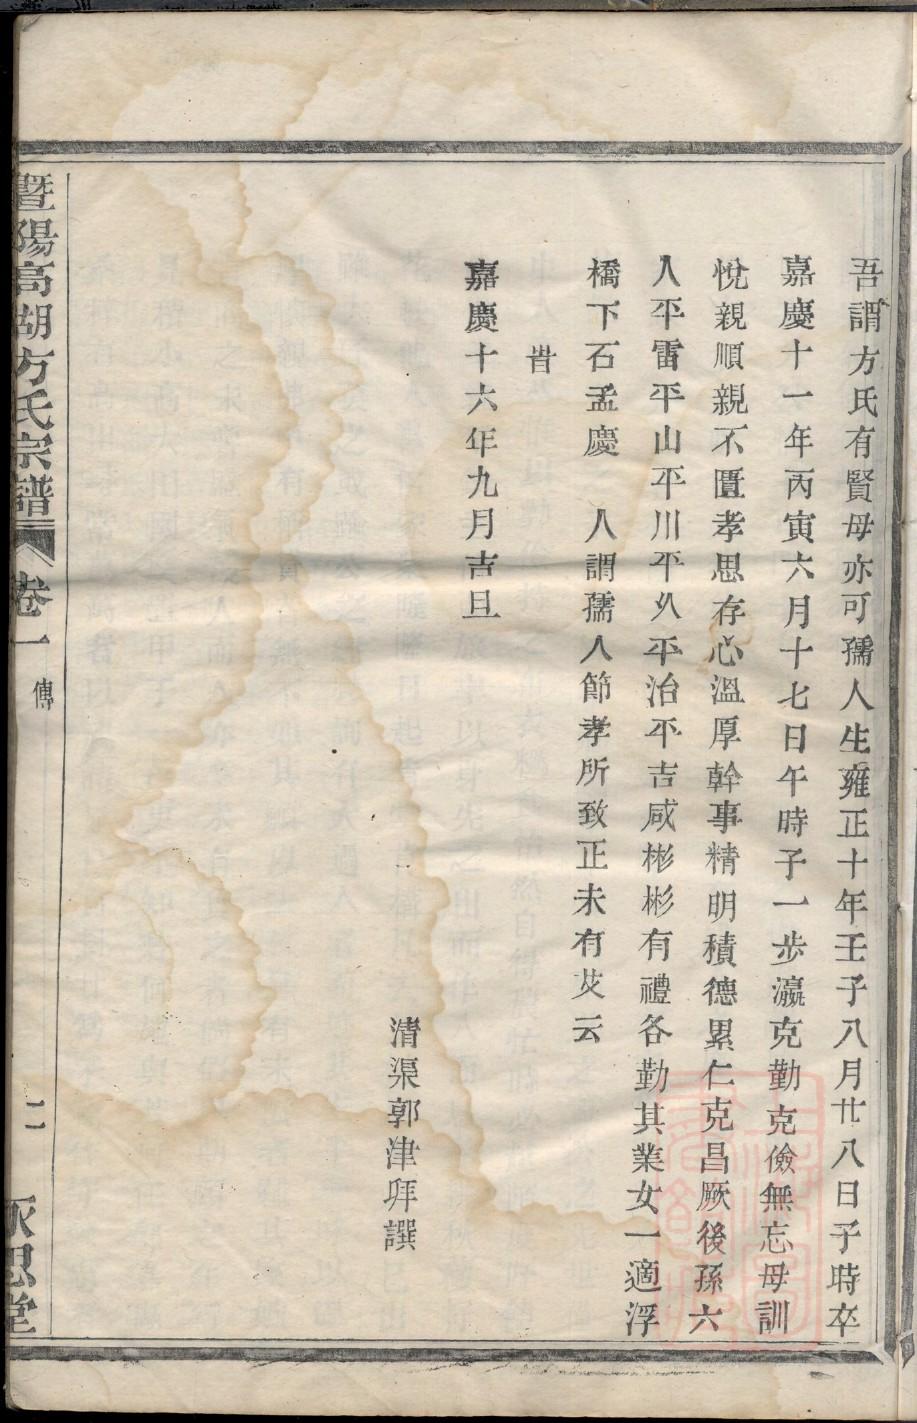 吾謂方氏有賢母亦可孺人生雍正十年壬子八月廿八日子時卒
嘉慶十一年丙寅六月十七日午時子一步瀛克勤克儉無忘母訓
悅親順親不匱孝思存心溫厚幹事精明積德累仁克昌厥後孫六
人平雷平山平川平乆平治平吉咸彬彬有禮各勤其業女一適浮
橋下石孟慶 人謂孺人節孝所致正未有艾云
旹
嘉慶十六年九月吉旦
清渠郭津拜譔
暨陽高湖方氏宗譜 卷一 傳 二 永思堂